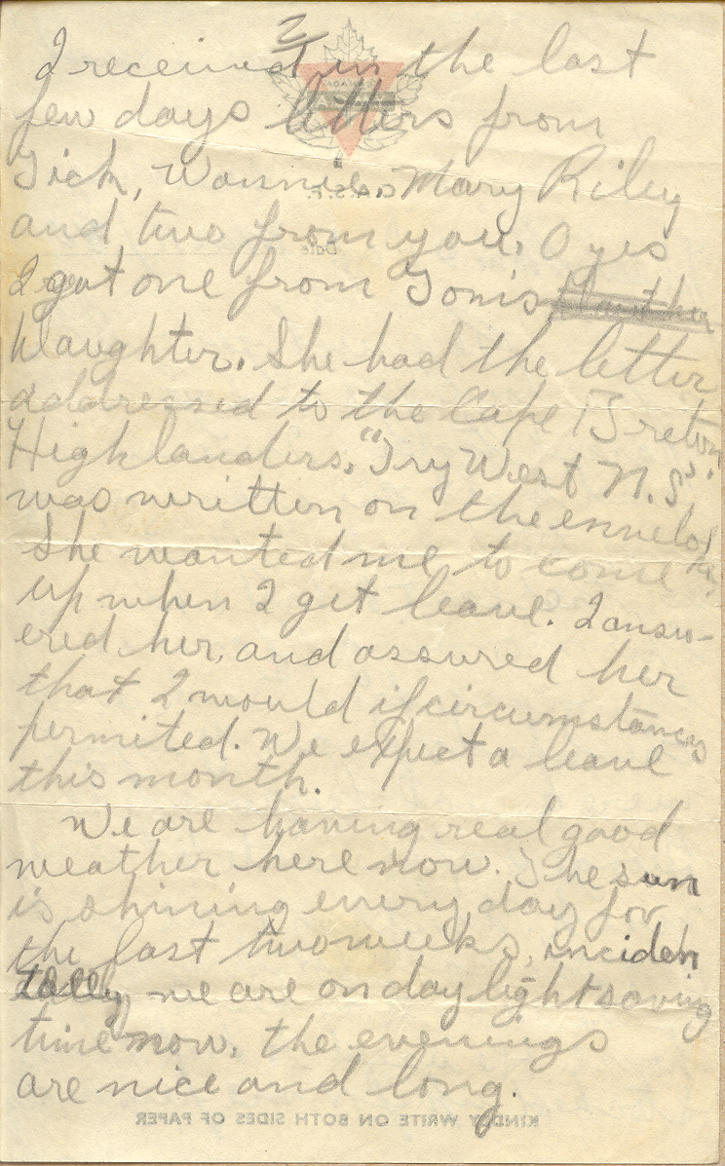 2
I received in the last
few days letters from
Tick, Wannie, Mary Riley
and two from you. O yes
I got one from Tonis
daughter. She had the letter
addressed to the Cape Breton
Highlanders. "Try West N.S."
was written on the envelope
She wanted me to come
up when I get leave. I answ-
ered her, and assured her
that I would if circumstances
permited. We expect a leave
this month.
We are having real good
weather here now. The sun
is shining every day for
the last two weeks, inciden
tally we are on daylight saving
time now, the evenings
are nice and long.
KINDLY WRITE ON BOTH SIDES OF PAPER